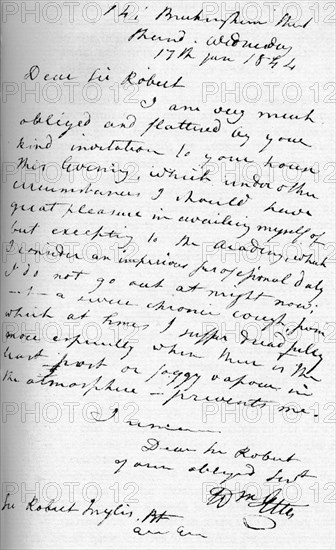 14 Buckingham Street
Strand. Wednesday
17th Jan 1844
Dear Sir Robert
I am very much
obliged and flattered by your
kind invitation to your house
this Evening, which under other
circumstances I should have
great pleasure in availing myself of
but excepting to the Academy, which
I consider an imperious professional duty
I do not go out at night now;
a severe chronic cough, from
which at times I suffer dreadfully
more especially when there is the
least frost or foggy vapour in
the atmosphere — prevents me.
I remain
Dear Sir Robert
your obliged Servt
Wm Etty
Sir Robert Inglis, Bt
PHOTO12